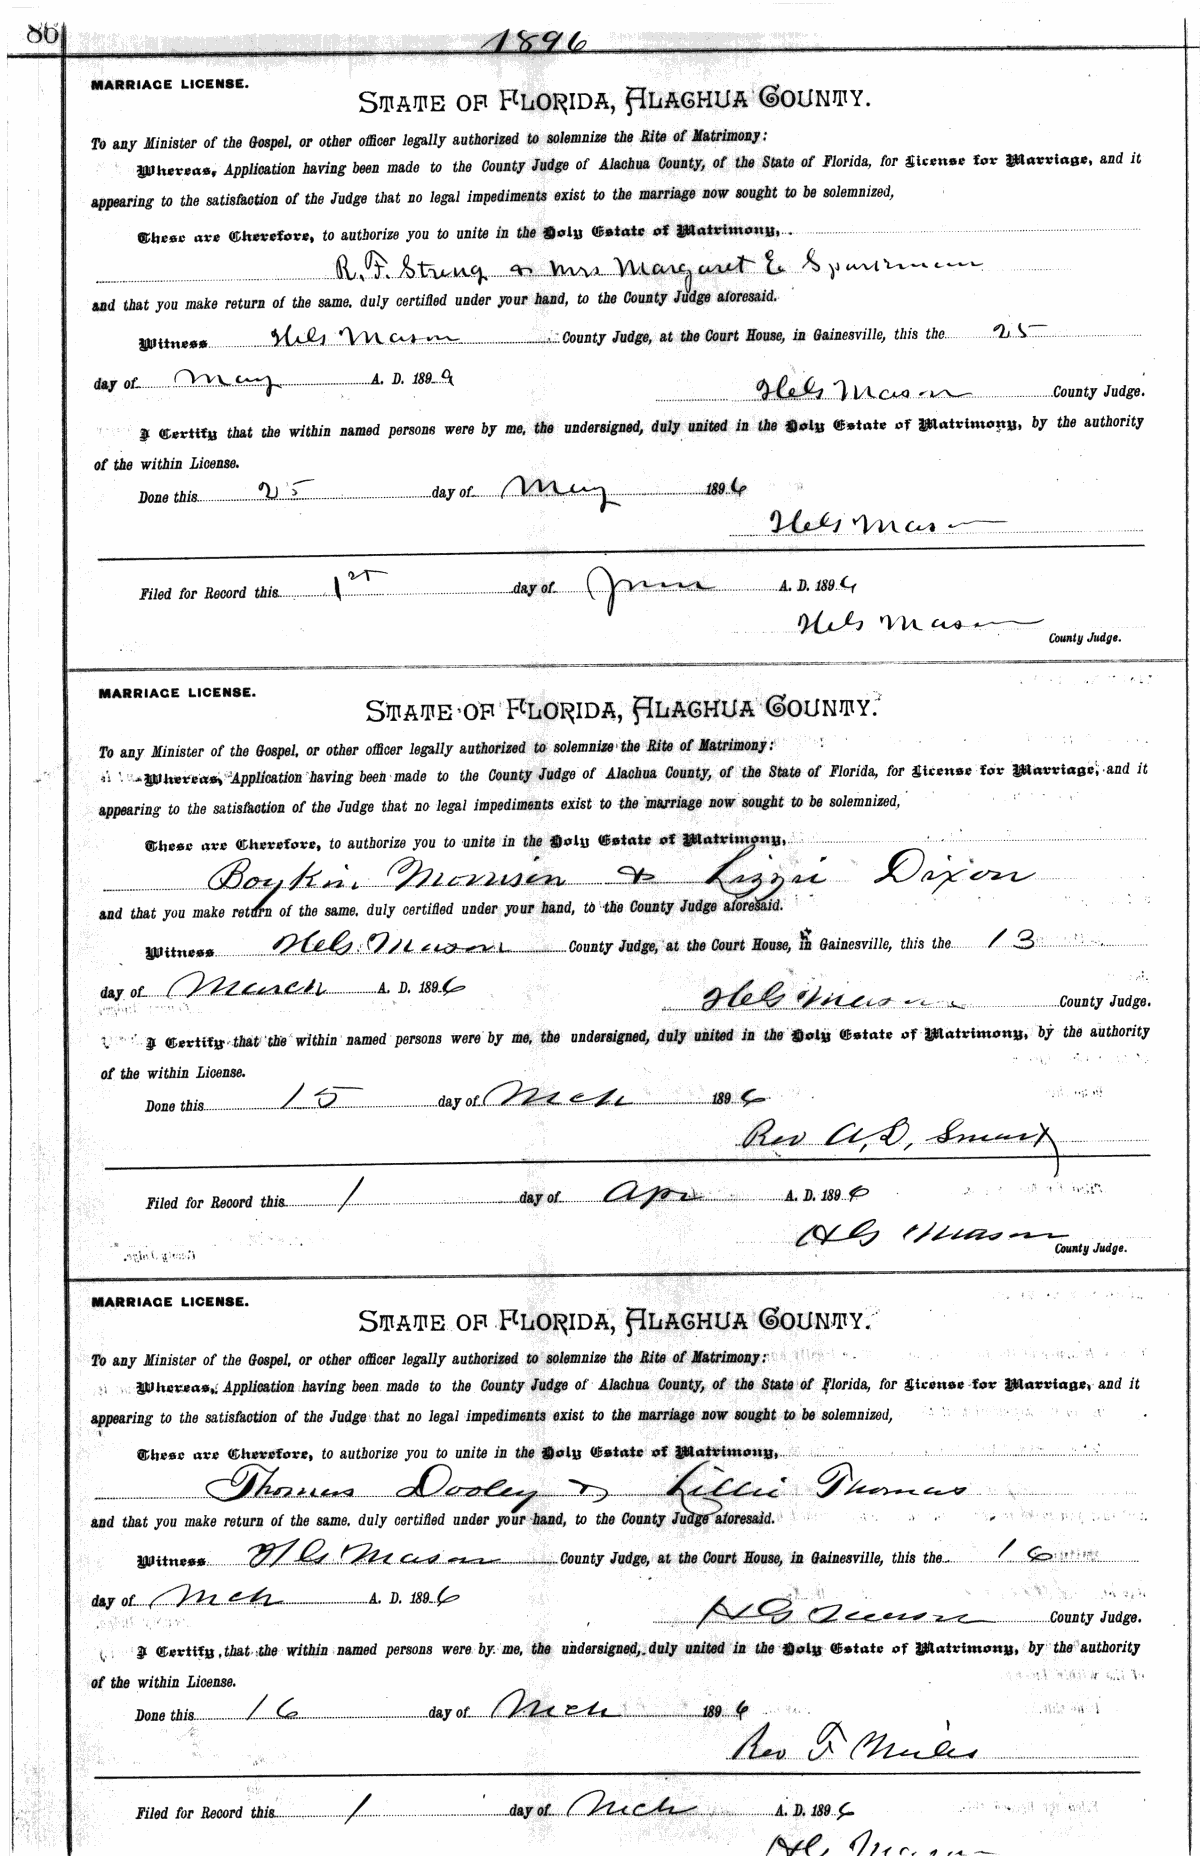 86
1896
MARRIAGE LICENSE.
STATE OF FLORIDA, ALACHUA COUNTY.
To any Minister of the Gospel, or other officer legally authorized to solemnize the Rite of Matrimony:
Whereas, Application having been made to the County Judge of Alachua County, of the State of Florida, for License for Marriage, and it
appearing to the satisfaction of the Judge that no legal impediments exist to the marriage now sought to be solemnized,
These are Therefore, to authorize you to unite in the Holy Estate of Matrimony,
R. F. & Mrs Margaret E.
and that you make return of the same, duly certified under your hand, to the County Judge aforesaid.
Witness Mason County Judge, at the Court House, in Gainesville, this the 25
day of May A. D. 1896
Mason County Judge.
I Certify that the within named persons were by me, the undersigned, duly united in the Holy Estate of Matrimony, by the authority
of the within License.
Done this 25 day of May 1896
Mason
Filed for Record this 1st day of June A. D. 1896
Mason
County Judge.
MARRIAGE LICENSE.
STATE OF FLORIDA, ALACHUA COUNTY.
To any Minister of the Gospel, or other officer legally authorized to solemnize the Rite of Matrimony:
Whereas, Application having been made to the County Judge of Alachua County, of the State of Florida, for License for Marriage, and it
appearing to the satisfaction of the Judge that no legal impediments exist to the marriage now sought to be solemnized,
These are Therefore, to authorize you to unite in the Holy Estate of Matrimony,
Boykin Morrison & Lizzie Dixon
and that you make return of the same, duly certified under your hand, to the County Judge aforesaid.
Witness Mason County Judge, at the Court House, in Gainesville, this the 13
day of March A. D. 1896
Mason County Judge.
I Certify that the within named persons were by me, the undersigned, duly united in the Holy Estate of Matrimony, by the authority
of the within License.
Done this 15 day of Mch 1896
Rev A. D. Smart
Filed for Record this 1 day of Apr A. D. 1896
HG Mason
County Judge.
MARRIAGE LICENSE.
STATE OF FLORIDA, ALACHUA COUNTY.
To any Minister of the Gospel, or other officer legally authorized to solemnize the Rite of Matrimony:
Whereas, Application having been made to the County Judge of Alachua County, of the State of Florida, for License for Marriage, and it
appearing to the satisfaction of the Judge that no legal impediments exist to the marriage now sought to be solemnized,
These are Therefore, to authorize you to unite in the Holy Estate of Matrimony,
Thomas Dooley & Lillie Thomas
and that you make return of the same, duly certified under your hand, to the County Judge aforesaid.
Witness HG Mason County Judge, at the Court House, in Gainesville, this the 16
day of Mch A. D. 1896
HG Mason County Judge.
I Certify, that the within named persons were by me, the undersigned, duly united in the Holy Estate of Matrimony, by the authority
of the within License.
Done this 16 day of Mch 1896
Rev F
Filed for Record this 1 day of Mch A. D. 1896
HG Mason